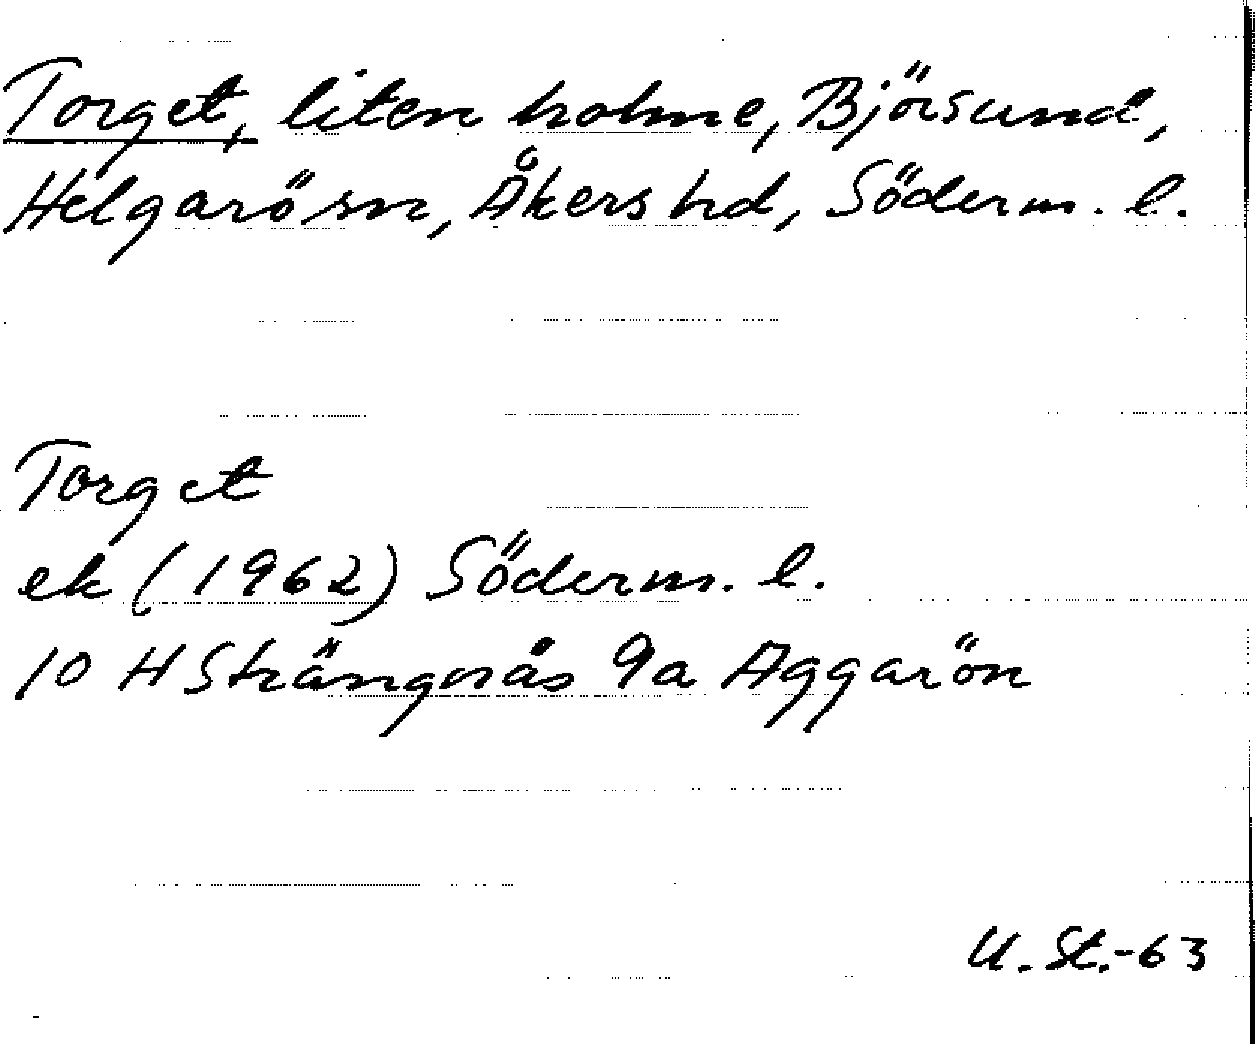 Torget, liten holme, Björsund,
Helgarö sn, Åkers hd, Söderm. l.
Torget
ek (1962) Söderm. l.
10 H Strängnäs 9a Aggarön
U. St.-63